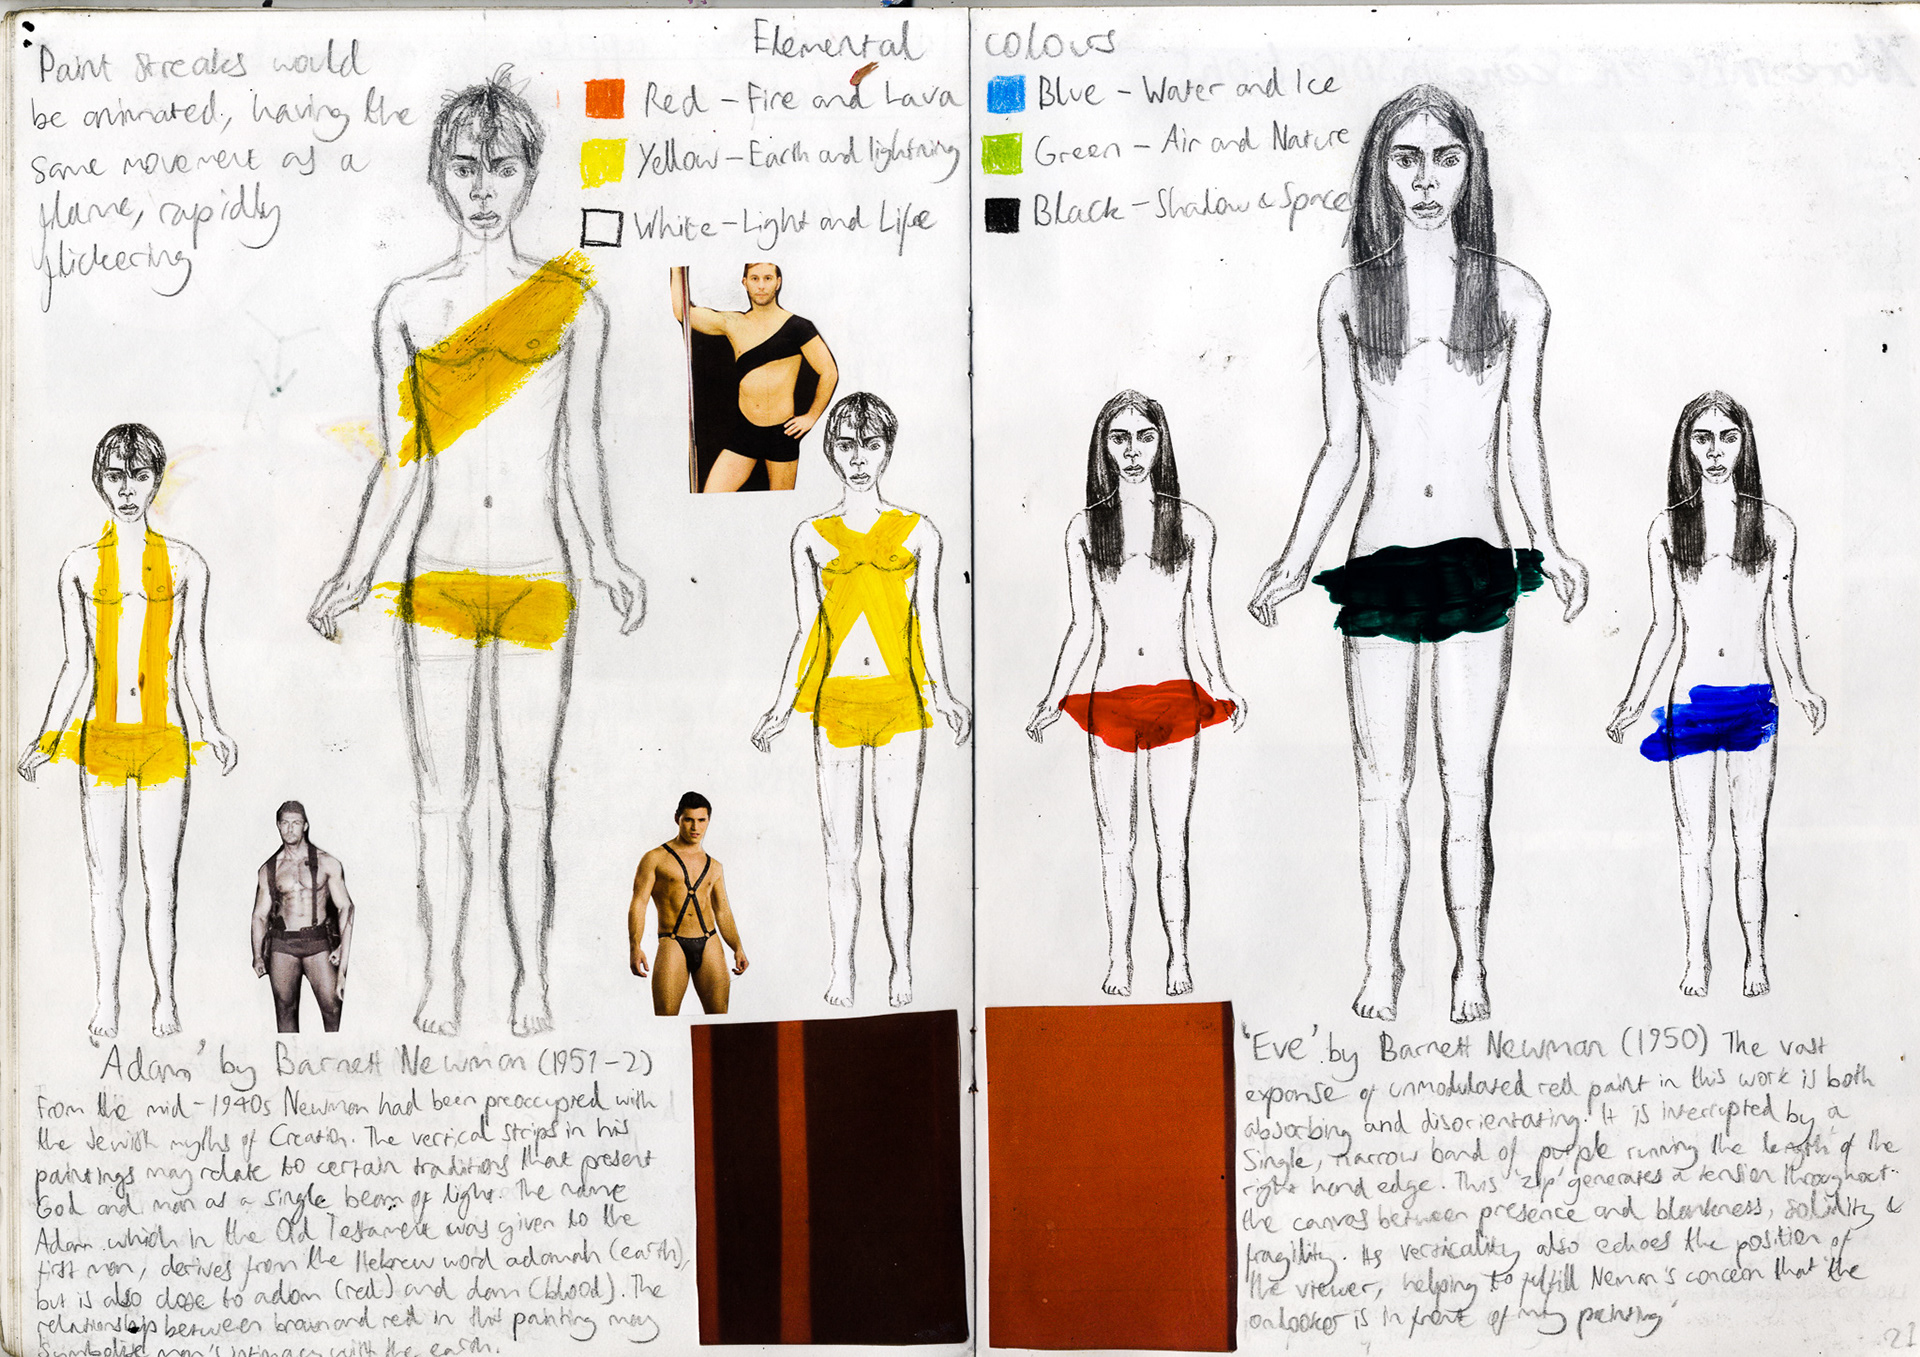 Paint streaks would
be animated, having the
same movement as a
flame, rapidly
flickering
Elemental colours
Red – Fire and Lava
Yellow – Earth and lightning
White – Light and Life
Blue – Water and Ice
Green – Air and Nature
Black – Shadow & Space
'Adam' by Barnett Newman (1951-2)
From the mid-1940s Newman had been preoccupied with
the Jewish myths of Creation. The vertical strips in his
paintings may relate to certain traditions that present
God and man as a single beam of light. The name
Adam which in the Old Testament was given to the
first man, derives from the Hebrew word adamah (earth),
but is also close to adom (red) and dam (blood). The
relationships between brown and red in this painting may
symbolise man's intimacy with the earth.
'Eve' by Barnett Newman (1950) The vast
expanse of unmodulated red paint in this work is both
absorbing and disorientating. It is interrupted by a
single, narrow band of purple running the length of the
right hand edge. This 'zip' generates a tension throughout
the canvas between presence and blankness, solidity &
fragility. Its verticality also echoes the position of
the viewer, helping to fulfill Neman's concern that 'the
onlooker is in front of my painting'
21